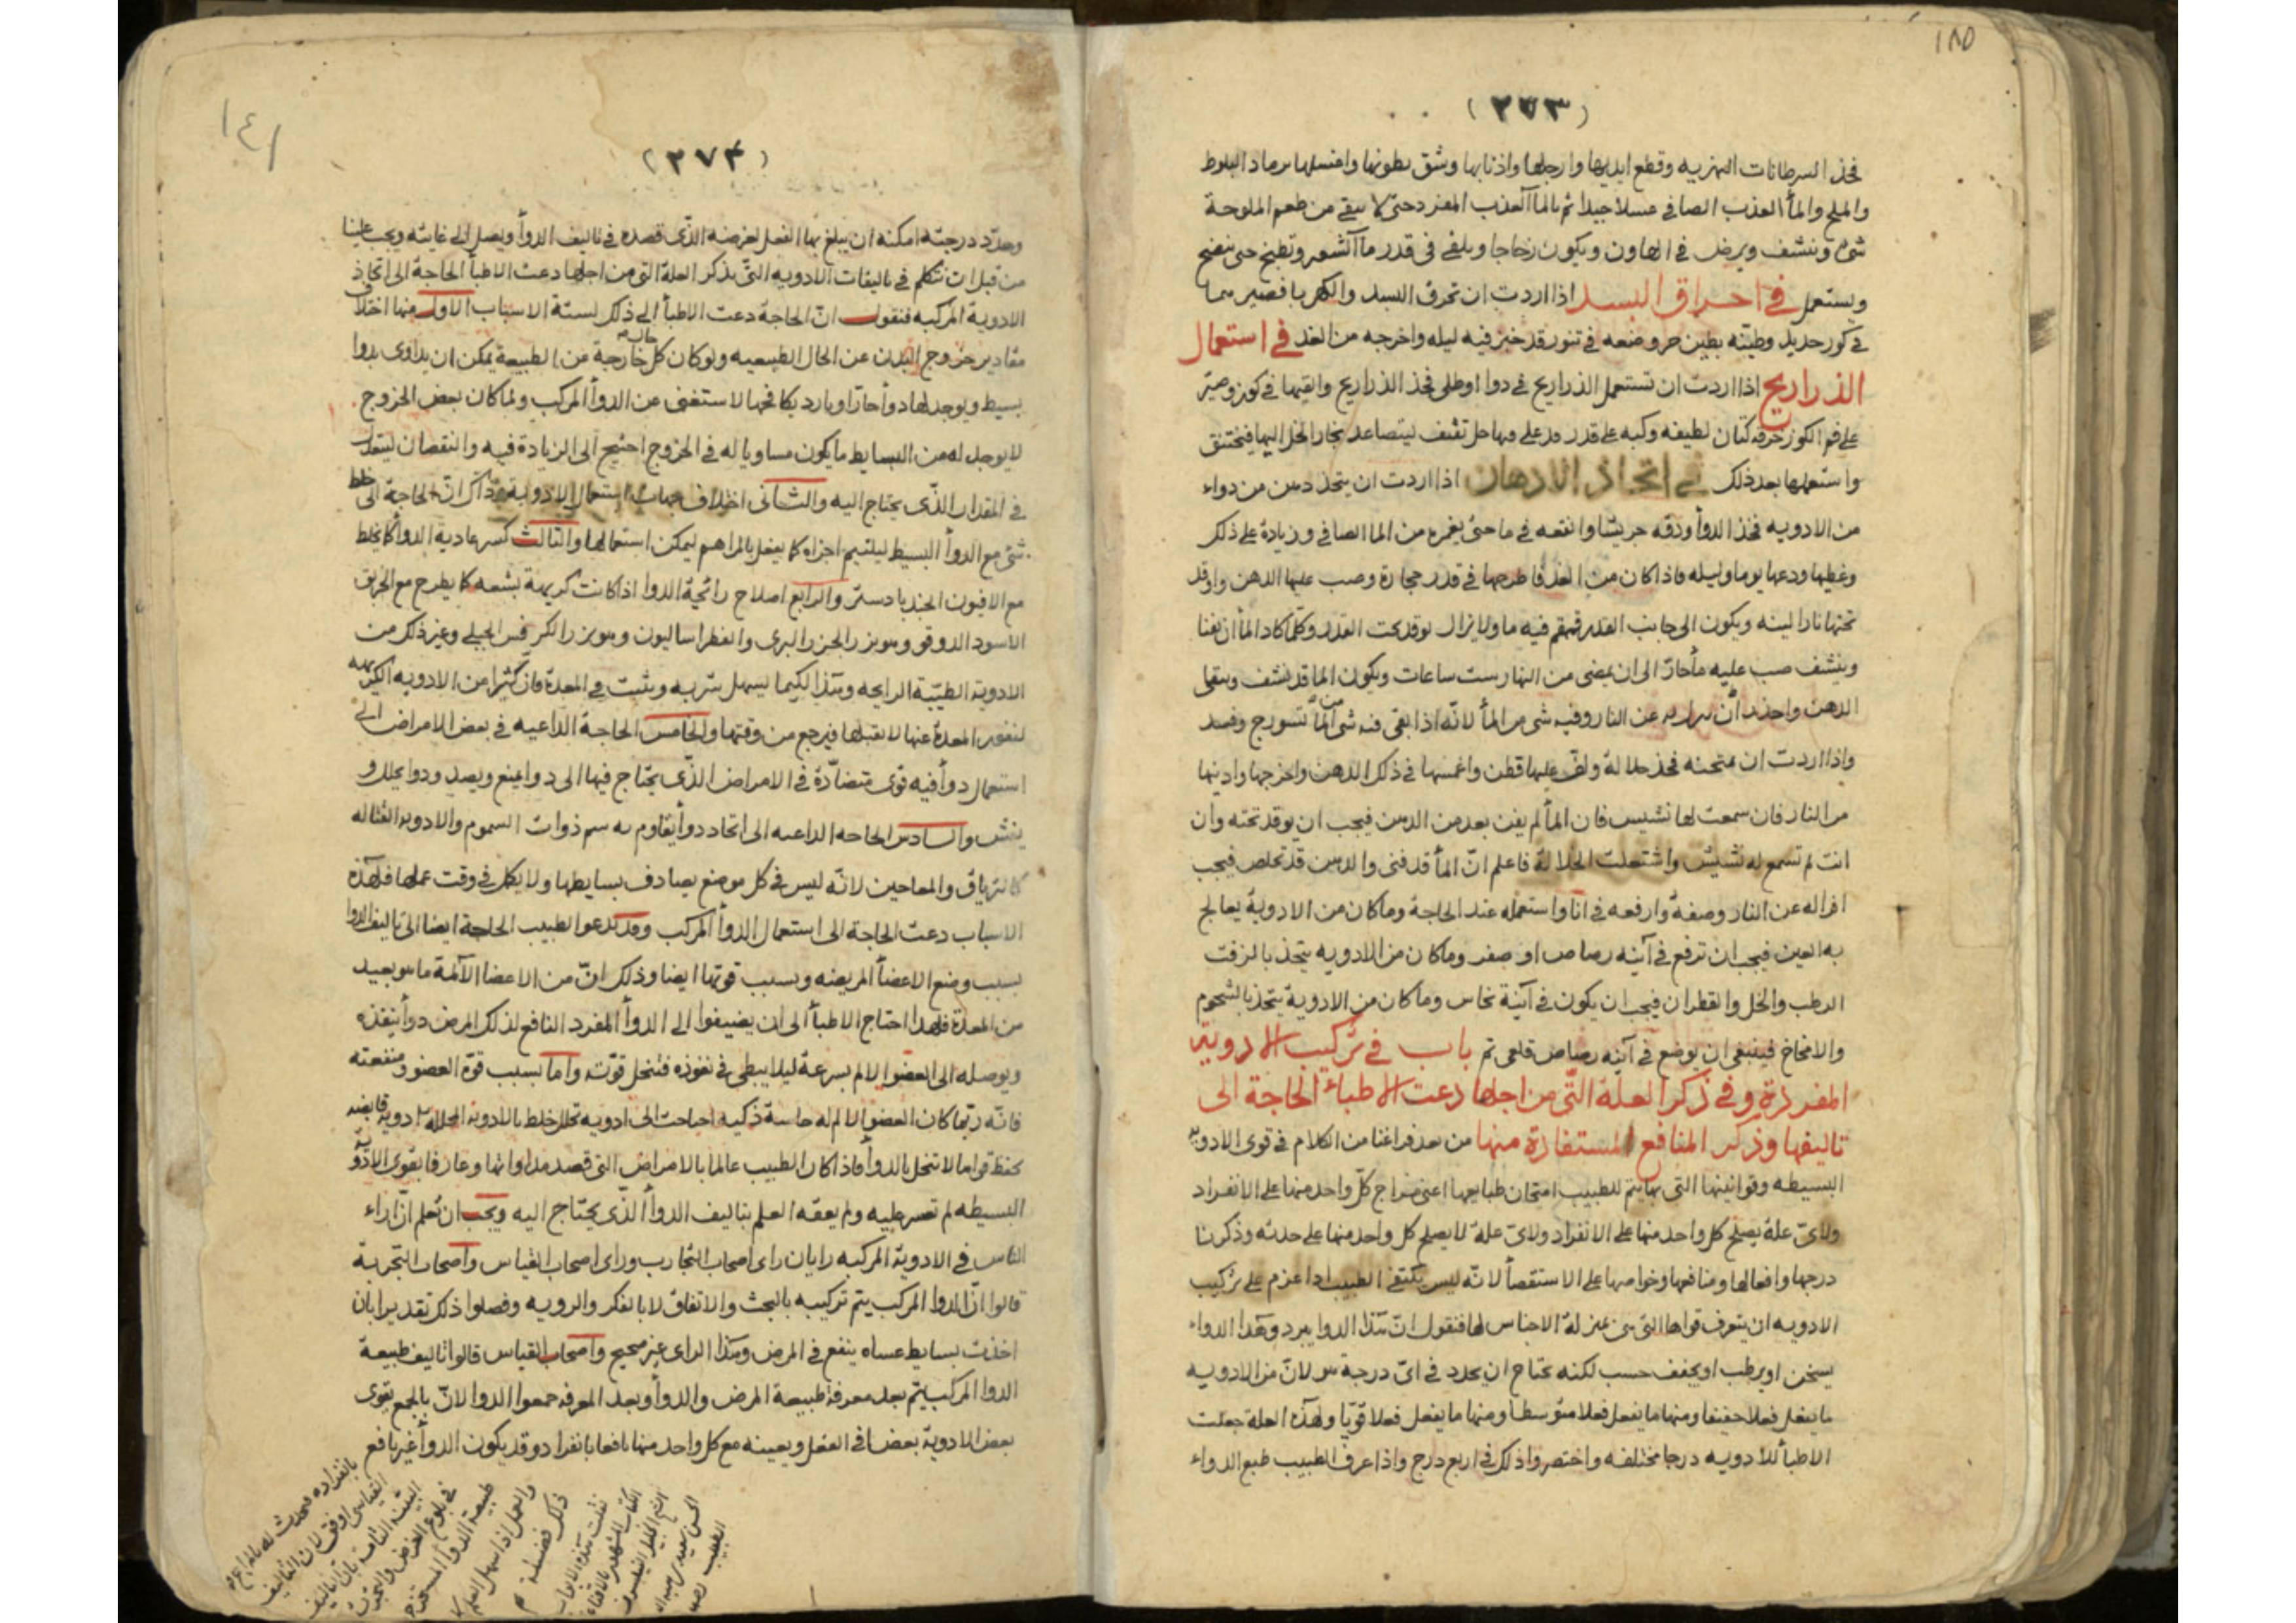 ١٨٥
(٢٧٣)
فخذ السرطانات النهريه وقطع ايديها وارجلها واذنابها وشق بطونها واغسلها برماد البلوط
والملح والمأ العذب الصافي غسلا جيدا ثم بالماء العذب المفرد حتى لا يبقى من طعم الملوحة
شئ وينشف ويرض في الهاون ويكون زجاجا ويلقى في قدر مآ الشعير وتطبخ حتى ينضج
ويستعمل في احراق البسد اذا اردت ان تحرق البسد والكهربا فصيرهما
في كوز حديد وطينه بطين حر وضعه في تنور قد خبز فيه ليله واخرجه من الغد في استعمال
الذراريح اذا اردت ان تستعمل الذراريح في دوا او طلى فخذ الذراريح والقيها في كوز وصير
على فم الكوز خرقه كتان لطيفه وكبه على قدر قد غلى فيها خل ثقيف ليتصاعد بخار الخل اليها فيختنق
واستعملها بعد ذلك في اتخاذ الادهان اذا اردت ان يتخذ دهن من دواء
من الادويه فخذ الدوأ ودقه جريشا وانقعه في ما حتى يغمره من الما الصافي وزيادة على ذلك
وغطها ودعها يوما وليله فاذا كان من الغد فاطرحها في قدر حجارة وصب عليها الدهن واوقد
تحتها نارا لينه ويكون الى جانب القدر قمقم فيه ما ولا يزال يوقد تحت القدر وكلما كاد المأ ان يفنا
وينشف صب عليه مأ حار الى ان يمضى من النهار ست ساعات ويكون الما قد نشف ويبقى
الدهن واحذر أن عن النار وفيه شى من المأ لانه اذا بقى فيه شى من المأ وفسد
واذا اردت ان تمتحنه فخذ خلالة ولف عليها قطن واغمسها في ذلك الدهن واخرجها وادنيها
من النار فان سمعت لها نشيش فان المأ لم يفن بعد من الدهن فيجب ان يوقد تحته وان
انت لم تسمع له نشيش واشتعلت الخلالة فاعلم ان المأ قد فنى والدهن قد تخلص فيجب
انزاله عن النار وصفه وارفعه في انا واستعمله عند الحاجة وما كان من الادوية يعالج
به العين فيجب ان ترفع في آنيه رصاص او صفر وما كان من الادويه يتخذ بالزفت
الرطب والخل والقطران فيجب ان يكون في آنية نحاس وما كان من الادوية يتخذ بالشحوم
والامخاخ فينبغى ان يوضع في آنيه رصاص قلعى تم باب في تركيب الادوية
المفردة وفي ذكر العلة التى من اجلها دعت الاطباء الحاجة الى
تاليفها وذكر المنافع المستفادة منها من بعد فراغنا من الكلام في قوى الادويه
البسيطه وقوانينها التى بها يتم للطبيب امتحان طبايعها اعنى مزاج كل واحد منها على الانفراد
ولاى علة يصلح كل واحد منها على الانفراد ولاى علة لا يصلح كل واحد منها على حدته وذكرنا
درجها وافعالها ومنافعها وخواصها على الاستقصأ لانه ليس يكتفى الطبيب اذا عزم على تركيب
الادويه ان يتعرف قواها التى هى بمنزلة الاجناس لها فنقول ان هذا الدوا يبرد وهذا الدواء
يسخن او يرطب او يجفف حسب لكنه يحتاج ان يحدد في اى درجة هو لان من الادويه
ما يفعل فعلا خفيفا ومنها ما يفعل فعلا متوسطا ومنها ما يفعل فعلا قويا ولهذه العلة جعلت
الاطبأ للادويه درجا مختلفه واختصروا ذلك في اربع درج واذا عرف الطبيب طبع الدواء
١٤١
(٢٧٤)
وحدد درجته امكنه ان يبلغ بها الفعل لغرضه الذى قصده في تاليف الدوأ ويصل الى غايته ويجب علينا
من قبل ان نتكلم في تاليفات الادويه التى بذكر العلة التى من اجلها دعت الاطبأ الحاجة الى اتخاذ
الادوية المركبه فنقول ان الحاجة دعت الاطبأ الى ذلك لستة الاسباب الاول منها اختلاف
مقادير خروج البدن عن الحال الطبيعيه ولو كان كل حالة خارجة عن الطبيعة يمكن ان يداوى بدوا
بسيط ويوجد لها دوأ حار او بارد يكافيها لاستغنى عن الدوأ المركب ولما كان بعض الخروج
لا يوجد له من البسايط ما يكون مساويا له في الخروج احتيج الى الزيادة فيه والنقصان ليتعدل
في المقدار الذى يحتاج اليه والثانى اختلاف جهات استعمال الادوية وذاك ان الحاجة الى خلط
شئ مع الدوأ البسيط ليلتيم اجزاه كما يفعل بالمراهم ليمكن استعمالها والثالث كسر عادية الدوأ كما يخلط
مع الافيون الجندبادستر والرابع اصلاح رائحية الدوا اذا كانت كريهة بشعه كما يطرح مع الخربق
الاسود الدوقو وهو بزر الجزر البرى والفطراساليون وهو بزر الكرفس الجبلى وغير ذلك من
الادوية الطيبة الرايحه وهذا لكيما يسهل شربه ويثبت في المعدة فان كثيرا من الادويه الكريهه
لنفور المعدة عنها لا تقبلها فيرجع من وقتها والخامس الحاجة الداعيه في بعض الامراض الى
استعمال دوأ فيه قوى متضادة في الامراض الذى يحتاج فيها الى دوا يمنع ويصد ودوا يحلل و
يفش والسادس الحاجه الداعيه الى اتخاذ دوأ يقاوم به سم ذوات السموم والادويه القتاله
كالترياق والمعاجين لانه ليس في كل موضع يصادف بسايطها ولا يمكن في وقت عملها فلهذه
الاسباب دعت الحاجة الى استعمال الدوأ المركب وقد تدعوا الطبيب الحاجة ايضا الى تاليف الدوا
بسبب وضع الاعضأ المريضه وبسبب قوتها ايضا وذلك ان من الاعضا الآلمة ما هو بعيد
من المعدة فلهذا احتاج الاطبأ الى ان يضيفوا الى الدوأ المفرد النافع لذلك المرض دوأ ينفذه
ويوصله الى العضو الالم بسرعة ليلا يبطى في نفوذه فتنحل قوته واما بسبب قوة العضو ومنفعته
فانه ربما كان العضو الالم له حاسة ذكيه احتاجت الى ادويه تحلل خلط بالادويه المحلله ادوية قابضه
تحفظ قواها لا تنحل بالدوأ فاذا كان الطبيب عالما بالامراض التى قصد مداواتها وعارفا بقوى الادوية
البسيطه لم تعسر عليه ولم يعقه العلم بتاليف الدوأ الذى يحتاج اليه ويجب ان تعلم ان اراء
الناس في الادوية المركبه رايان راى اصحاب التجارب وراى اصحاب القياس واصحاب التجربة
قالوا ان الدوا المركب يتم تركيبه بالبحث والاتفاق لا بالفكر والرويه وفصلوا ذلك تقديرا بان
اخذت بسايط عساه ينفع في المرض وهذا الراى غير صحيح واصحاب القياس قالوا تاليف طبيعة
الدوا المركب يتم بعد معرفة طبيعة المرض والدوأ وبعد المعرفه جمعوا الدوا لان بالجمع يقوى
بعض الادوية بعضا في الفعل ويعينه مع كل واحد منها نافعا بانفراد وقد يكون الدوأ غير نافع
بانفراده فيحدث له بالمزاج
القياس اوفق لان التاليف
البينة التامة بان التاليف
في بلوغ الغرض والتجربة
طبيعة الدوأ المستخرج
والعمل اذا سهل العلم
ذلك فضيلة
نقلت هذه الابواب
الكتاب المشهور بالاقناع
الشيخ الجليل الفيلسوف
الحسن سعيد بن هبة الله
الطبيب